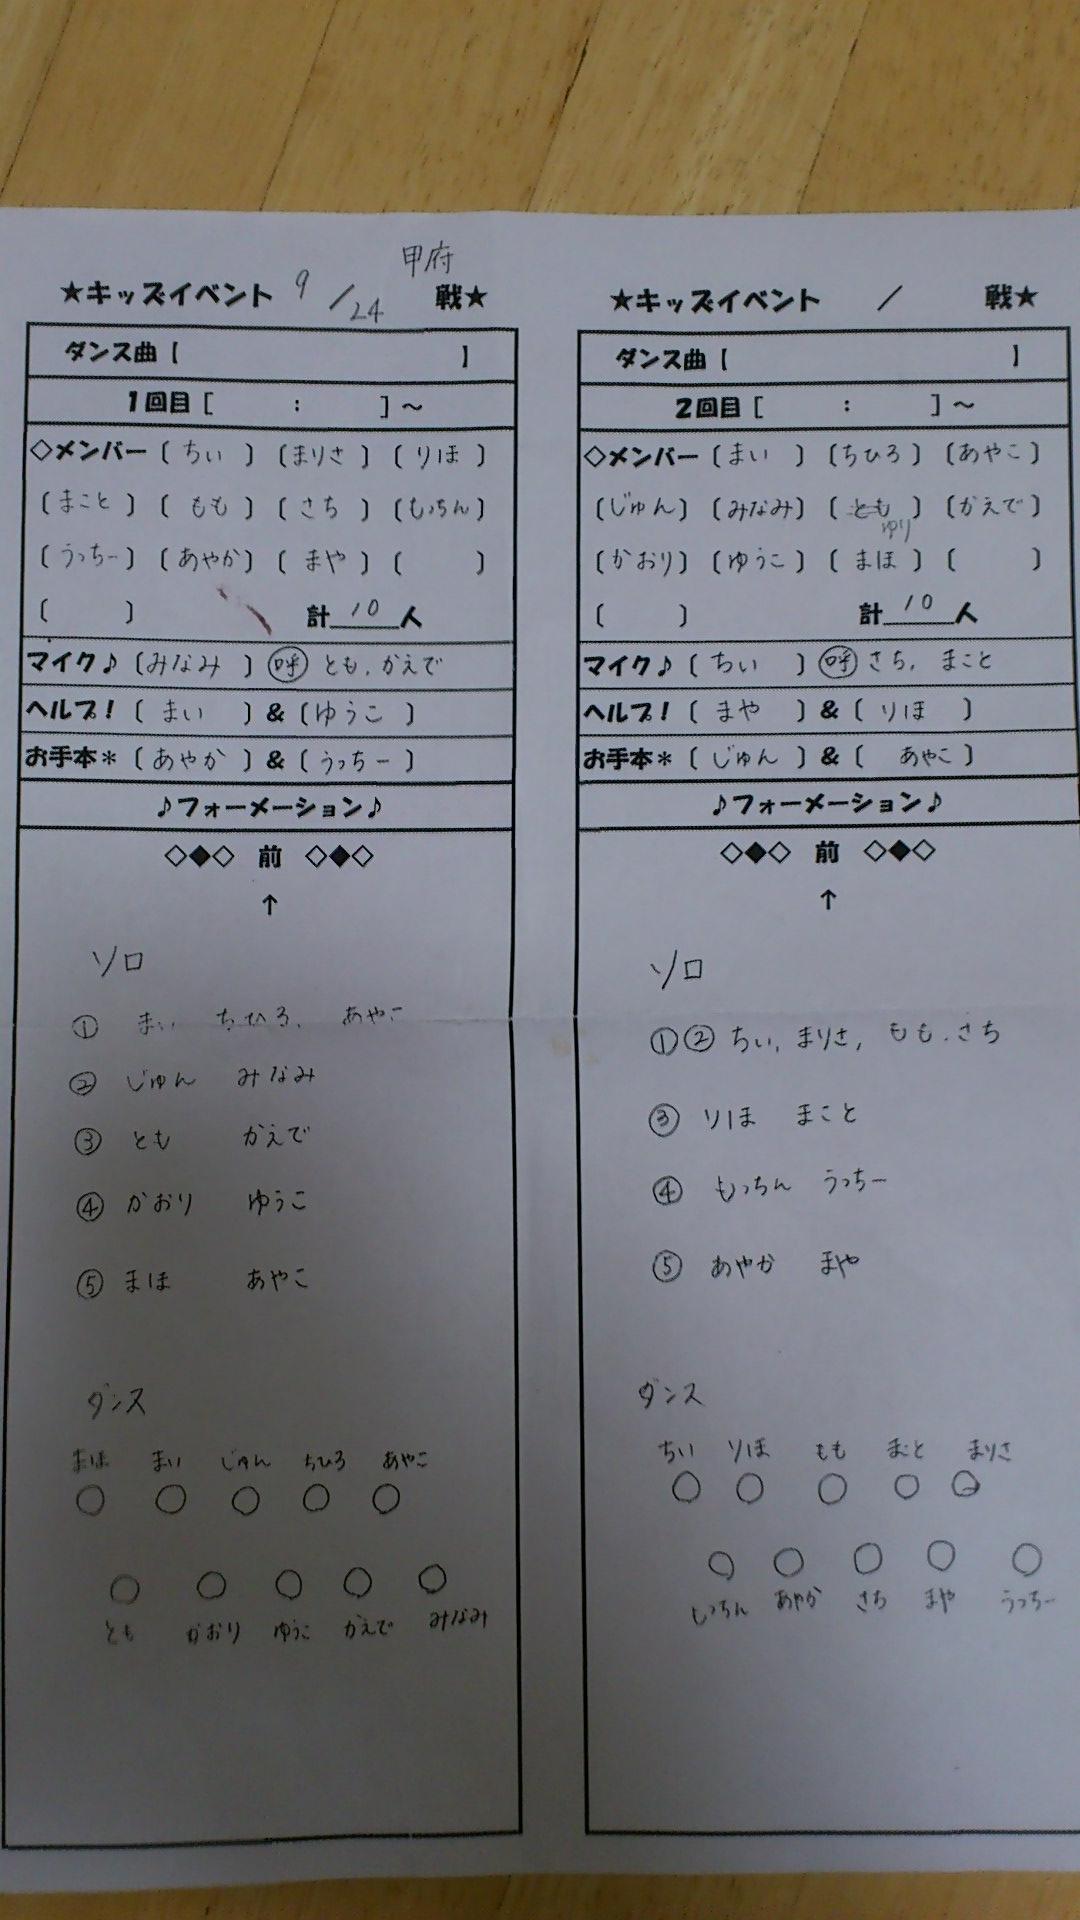 甲府
★キッズイベント 9/24 戦★
ダンス曲 [ ]
1回目 [ : ]～
◇メンバー [ ちい ] [ まりさ ] [ りほ ]
[ まこと ] [ もも ] [ さち ] [ もっちん ]
[ うっちー ] [ あやか ] [ まや ] [ ]
[ ] 計 10 人
マイク♪ [ みなみ ] 呼 とも、かえで
ヘルプ! [ まい ] & [ ゆうこ ]
お手本* [ あやか ] & [ うっちー ]
♪フォーメーション♪
◇◆◇ 前 ◇◆◇
↑
ソロ
① まい ちひろ、あやこ
② じゅん みなみ
③ とも かえで
④ かおり ゆうこ
⑤ まほ あやこ
ダンス
まほ まい じゅん ちひろ あやこ
○ ○ ○ ○ ○
○ ○ ○ ○ ○
とも かおり ゆうこ かえで みなみ
★キッズイベント / 戦★
ダンス曲 [ ]
2回目 [ : ]～
◇メンバー [ まい ] [ ちひろ ] [ あやこ ]
[ じゅん ] [ みなみ ] [ とも ] [ かえで ]
ゆり
[ かおり ] [ ゆうこ ] [ まほ ] [ ]
[ ] 計 10 人
マイク♪ [ ちい ] 呼 さち、まこと
ヘルプ! [ まや ] & [ りほ ]
お手本* [ じゅん ] & [ あやこ ]
♪フォーメーション♪
◇◆◇ 前 ◇◆◇
↑
ソロ
①② ちい、まりさ、もも、さち
③ りほ まこと
④ もっちん うっちー
⑤ あやか まや
ダンス
ちい りほ もも まこと まりさ
○ ○ ○ ○ ○
○ ○ ○ ○ ○
あやか さち まや うっちー